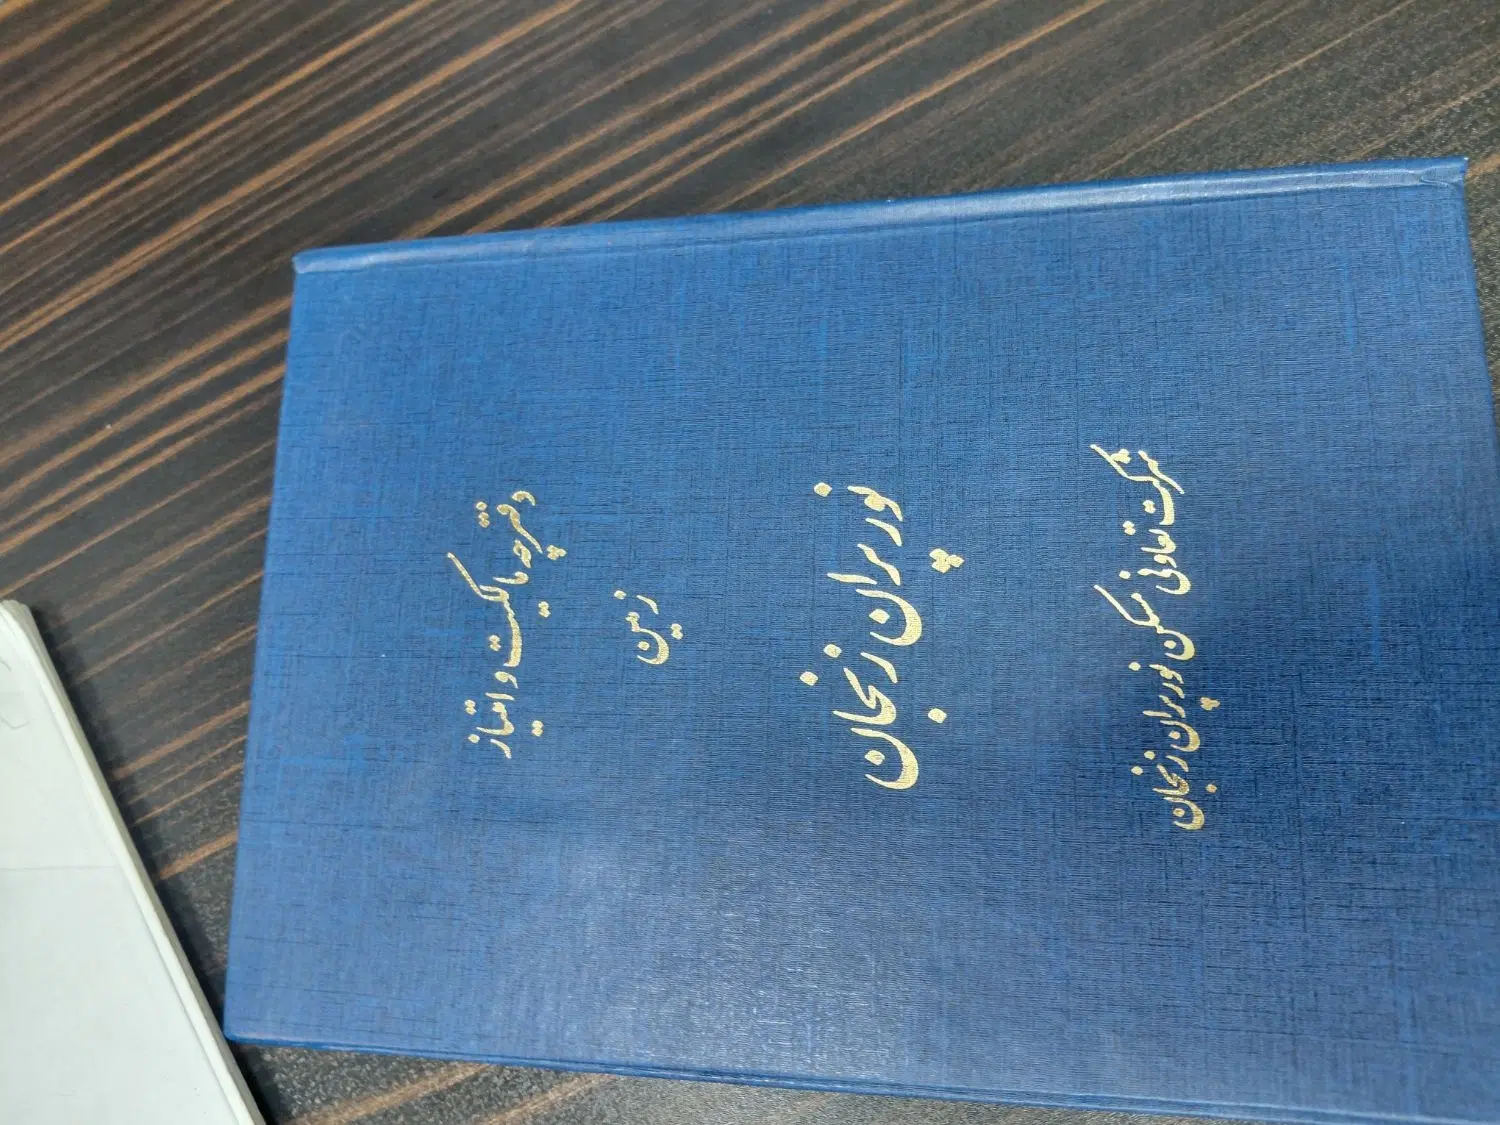 دفترچه مالکیت و امتیاز
زمین
نور پران زنجان
شرکت تعاونی مسکن نور پران زنجان